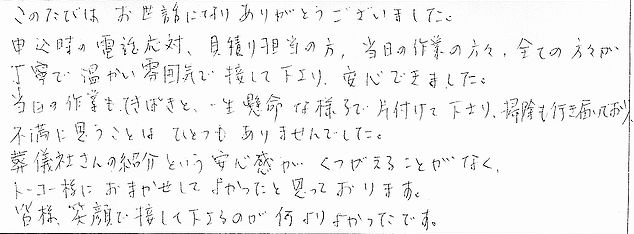 このたびは お世話になりありがとうございました。
申込時の電話応対、見積り担当の方、当日の作業の方々、全ての方々が
丁寧で温かい雰囲気で接して下さり、安心できました。
当日の作業もてきぱきと、一生懸命な様子で片付けて下さり、掃除も行き届いており、
不満に思うことは ひとつも ありませんでした。
葬儀社さんの紹介という安心感が くつがえることがなく、
トーコー様に おまかせして よかったと思っております。
皆様、笑顔で接して下さるのが何よりよかったです。